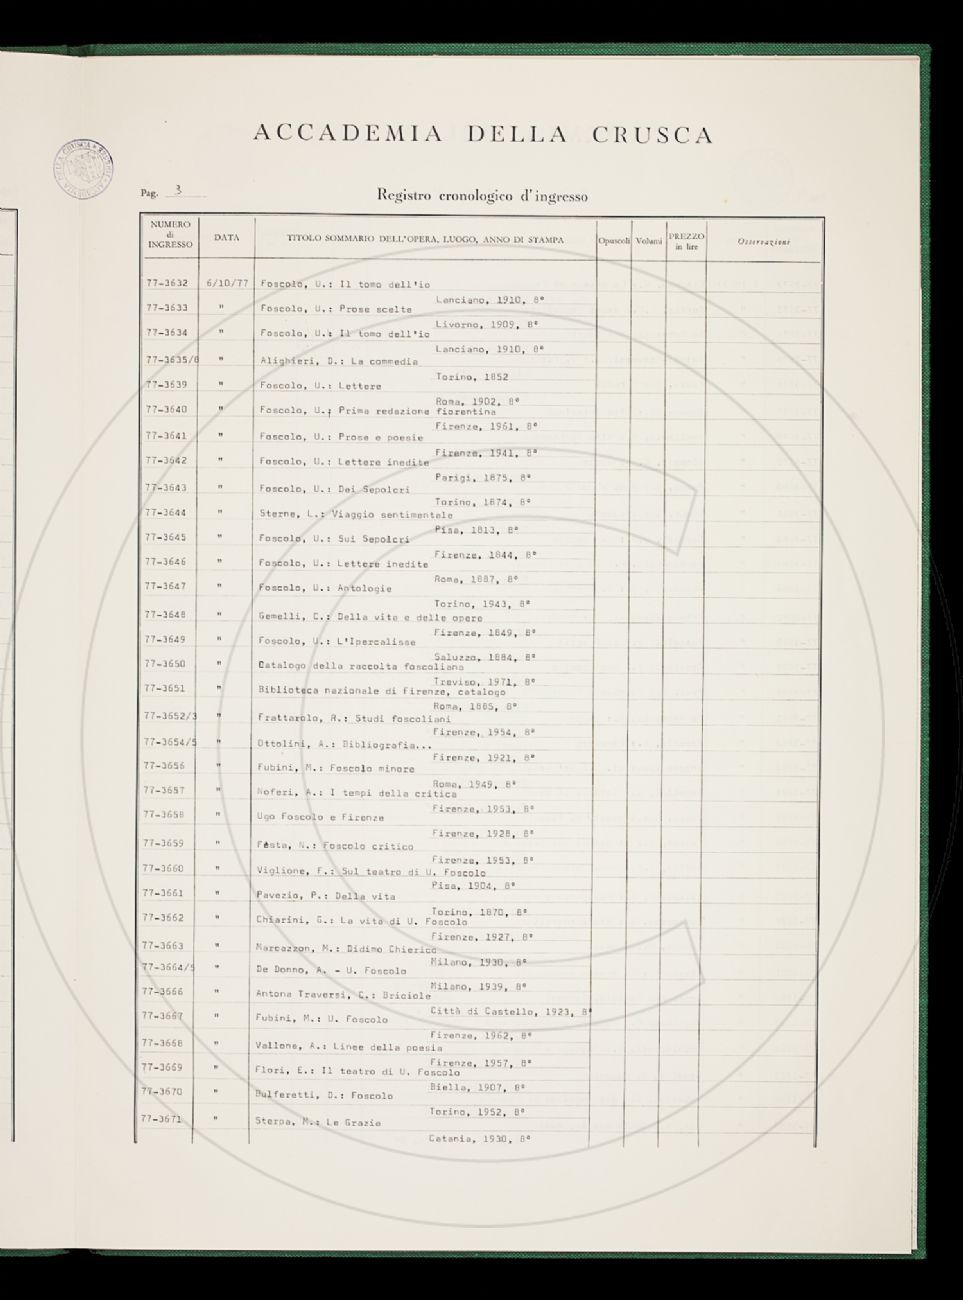 ACCADEMIA DELLA CRUSCA
Pag. 3
Registro cronologico d'ingresso
NUMERO di INGRESSO DATA TITOLO SOMMARIO DELL'OPERA, LUOGO, ANNO DI STAMPA Opuscoli Volumi PREZZO in lire Osservazioni
77-3632 6/10/77 Foscolo, U.: Il tomo dell'io
Lanciano, 1910, 8°
77-3633 " Foscolo, U.: Prose scelte
Livorno, 1909, 8°
77-3634 " Foscolo, U.: Il tomo dell'io
Lanciano, 1910, 8°
77-3635/8 " Alighieri, D.: La commedia
Torino, 1852
77-3639 " Foscolo, U.: Lettere
Roma, 1902, 8°
77-3640 " Foscolo, U.: Prima redazione fiorentina
Firenze, 1961, 8°
77-3641 " Foscolo, U.: Prose e poesie
Firenze, 1941, 8°
77-3642 " Foscolo, U.: Lettere inedite
Parigi, 1875, 8°
77-3643 " Foscolo, U.: Dei Sepolcri
Torino, 1874, 8°
77-3644 " Sterne, L.: Viaggio sentimentale
Pisa, 1813, 8°
77-3645 " Foscolo, U.: Sui Sepolcri
Firenze, 1844, 8°
77-3646 " Foscolo, U.: Lettere inedite
Roma, 1887, 8°
77-3647 " Foscolo, U.: Antologie
Torino, 1943, 8°
77-3648 " Gemelli, C.: Della vita e delle opere
Firenze, 1849, 8°
77-3649 " Foscolo, U.: L'Ipercalisse
Saluzzo, 1884, 8°
77-3650 " Catalogo della raccolta foscoliana
Treviso, 1971, 8°
77-3651 " Biblioteca nazionale di Firenze, catalogo
Roma, 1885, 8°
77-3652/3 " Frattarolo, R.: Studi foscoliani
Firenze, 1954, 8°
77-3654/5 " Ottolini, A.: Bibliografia...
Firenze, 1921, 8°
77-3656 " Fubini, M.: Foscolo minore
Roma, 1949, 8°
77-3657 " Noferi, A.: I tempi della critica
Firenze, 1953, 8°
77-3658 " Ugo Foscolo e Firenze
Firenze, 1928, 8°
77-3659 " Festa, N.: Foscolo critico
Firenze, 1953, 8°
77-3660 " Viglione, F.: Sul teatro di U. Foscolo
Pisa, 1904, 8°
77-3661 " Pavezio, P.: Della vita
Torino, 1870, 8°
77-3662 " Chiarini, G.: La vita di U. Foscolo
Firenze, 1927, 8°
77-3663 " Marcazzan, M.: Didimo Chierico
Milano, 1930, 8°
77-3664/5 " De Donno, A. - U. Foscolo
Milano, 1939, 8°
77-3666 " Antona Traversi, C.: Briciole
Città di Castello, 1923, 8°
77-3667 " Fubini, M.: U. Foscolo
Firenze, 1962, 8°
77-3668 " Vallone, A.: Linee della poesia
Firenze, 1957, 8°
77-3669 " Flori, E.: Il teatro di U. Foscolo
Biella, 1907, 8°
77-3670 " Bulferetti, D.: Foscolo
Torino, 1952, 8°
77-3671 " Sterpa, M.: Le Grazie
Catania, 1930, 8°